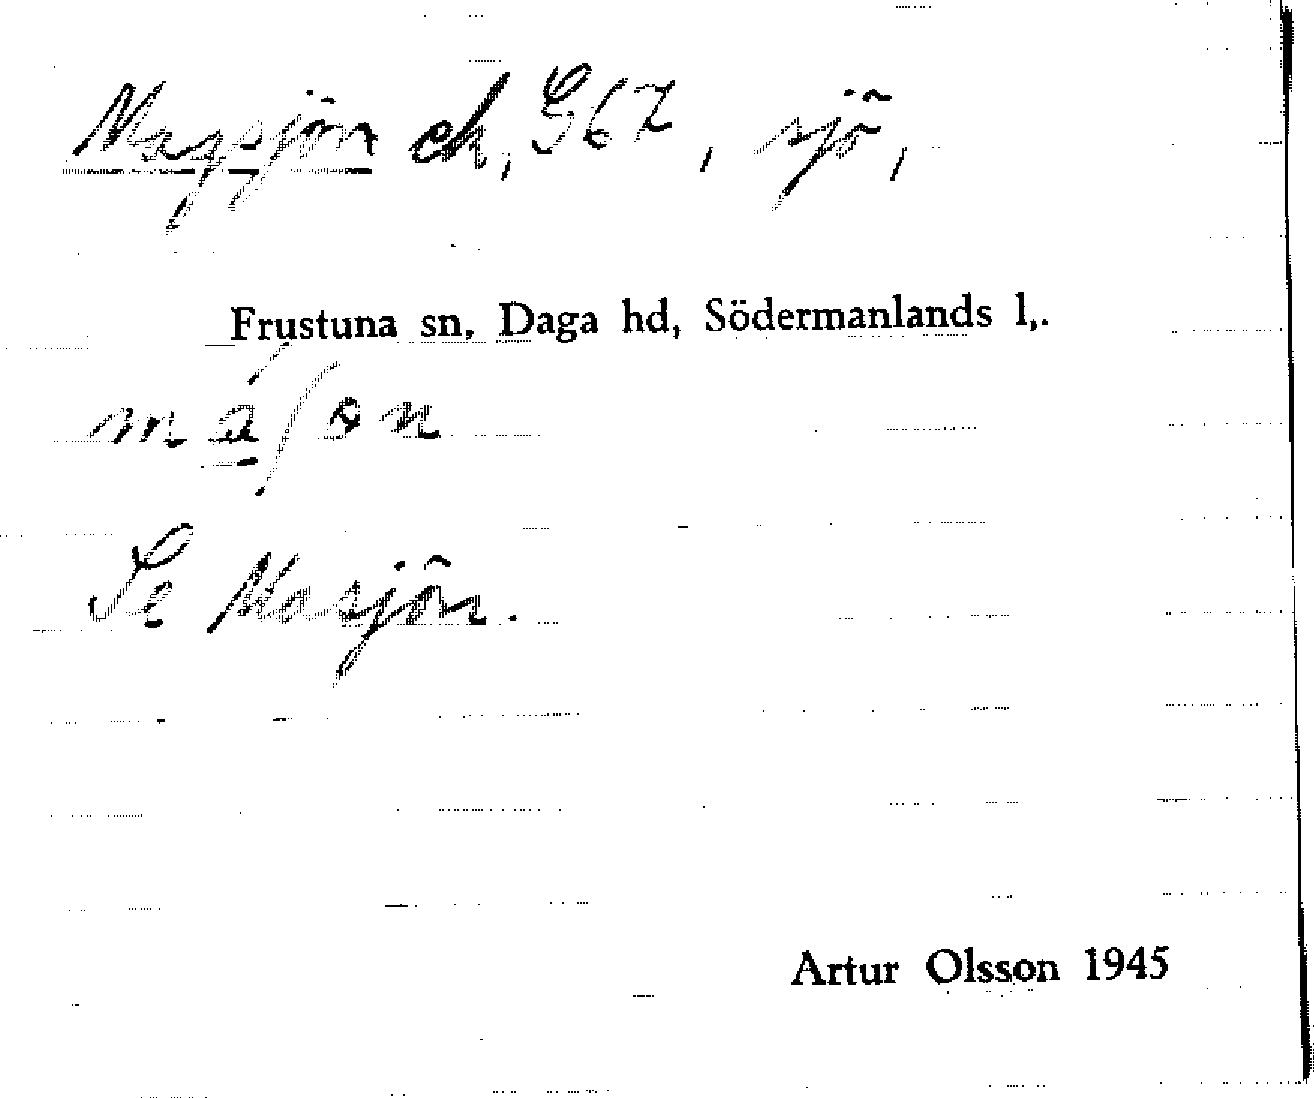 Magsjön ek, G67, sjö,
Frustuna sn, Daga hd, Södermanlands l,.
má̱ʃɵn
Se Masjön.
Artur Olsson 1945